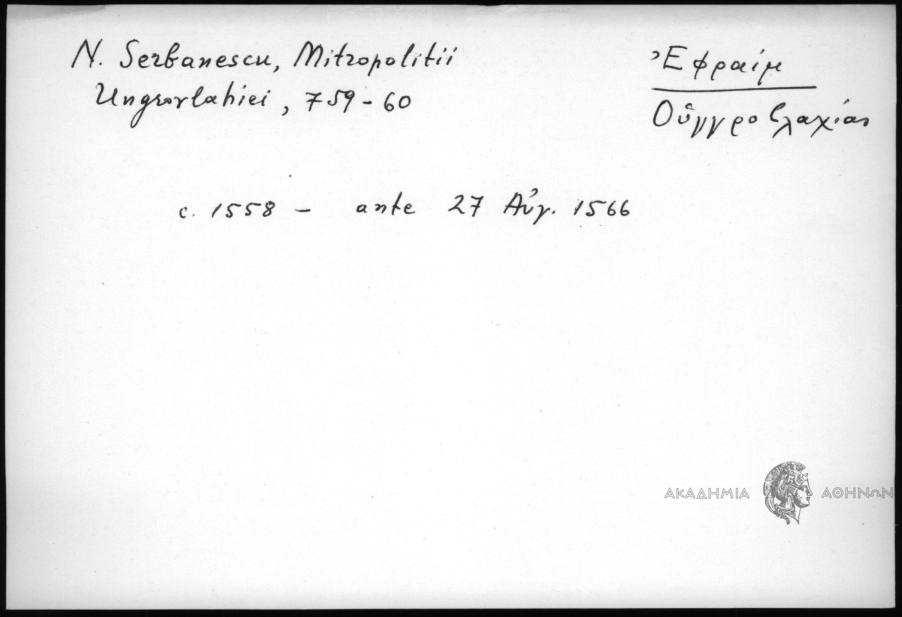 N. Serbanescu, Mitropolitii
Ungrovlahiei, 759-60
Ἐφραίμ
Οὑγγροβλαχίας
c. 1558 - ante 27 Αὐγ. 1566
ΑΚΑΔΗΜΙΑ ΑΘΗΝΩΝ